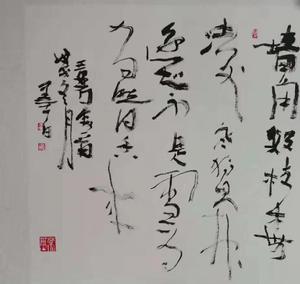 墙角数枝梅
凌寒独自开
遥知不是雪为
有暗香来
戊戌冬月